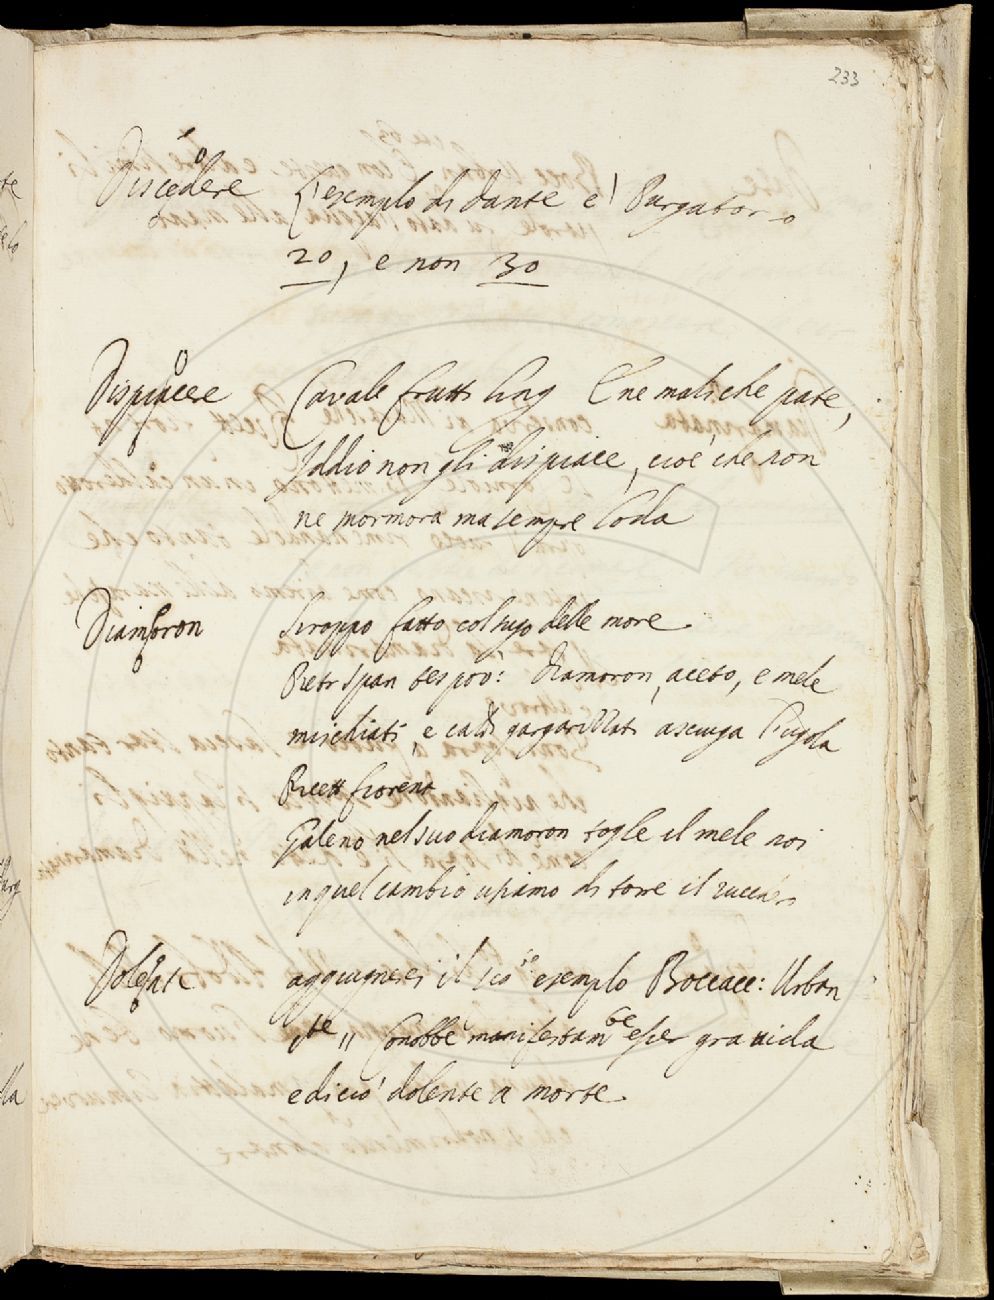 233
Discedere L'esempio di dante e' Purgator
20, e non 30
Dispiacere Cavalc frutt ling E ne mali che pate,
Iddio non gli dispiace, cioè, che non
ne mormora ma sempre loda
Diamoron Siroppo fatto col sugo delle more
Pietr Span tes pov: diamoron, aceto, e mele
mischiati, e caldi gargarizzati asciuga l'ugola
Ricett fiorent
Galeno nel suo diamoron togle il mele noi
in quel cambio usiamo di torre il zucch
Dolente aggiugnere il esempio Boccacc: Urban
Conobbe manifestamte esser gravida
e di ciò dolente a morte